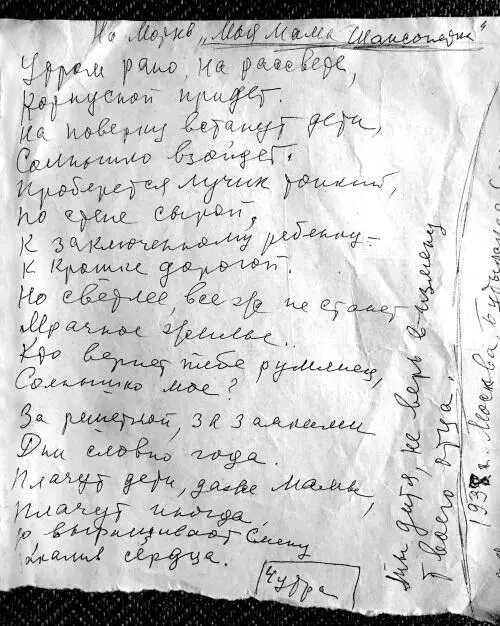 На мотив „Моя Мама Шансонетка"
Утром рано, на рассвете,
Корпусной придет.
На поверку встанут дети,
Солнышко взойдет.
Проберется лучик тонкий,
По стене сырой,
К заключенному ребенку –
К крошке дорогой.
Но светлее, все же не станет
Мрачное жилье..
Кто вернет тебе румянец,
Солнышко мое?
За решеткой, за замками
Дни словно года.
Плачут дети, даже мамы,
Плачут иногда
о выращивают Смену
акалив сердца.
Ты дитя, не верь в измену
Твоего отца.
1938 г. Москва. Бутырская